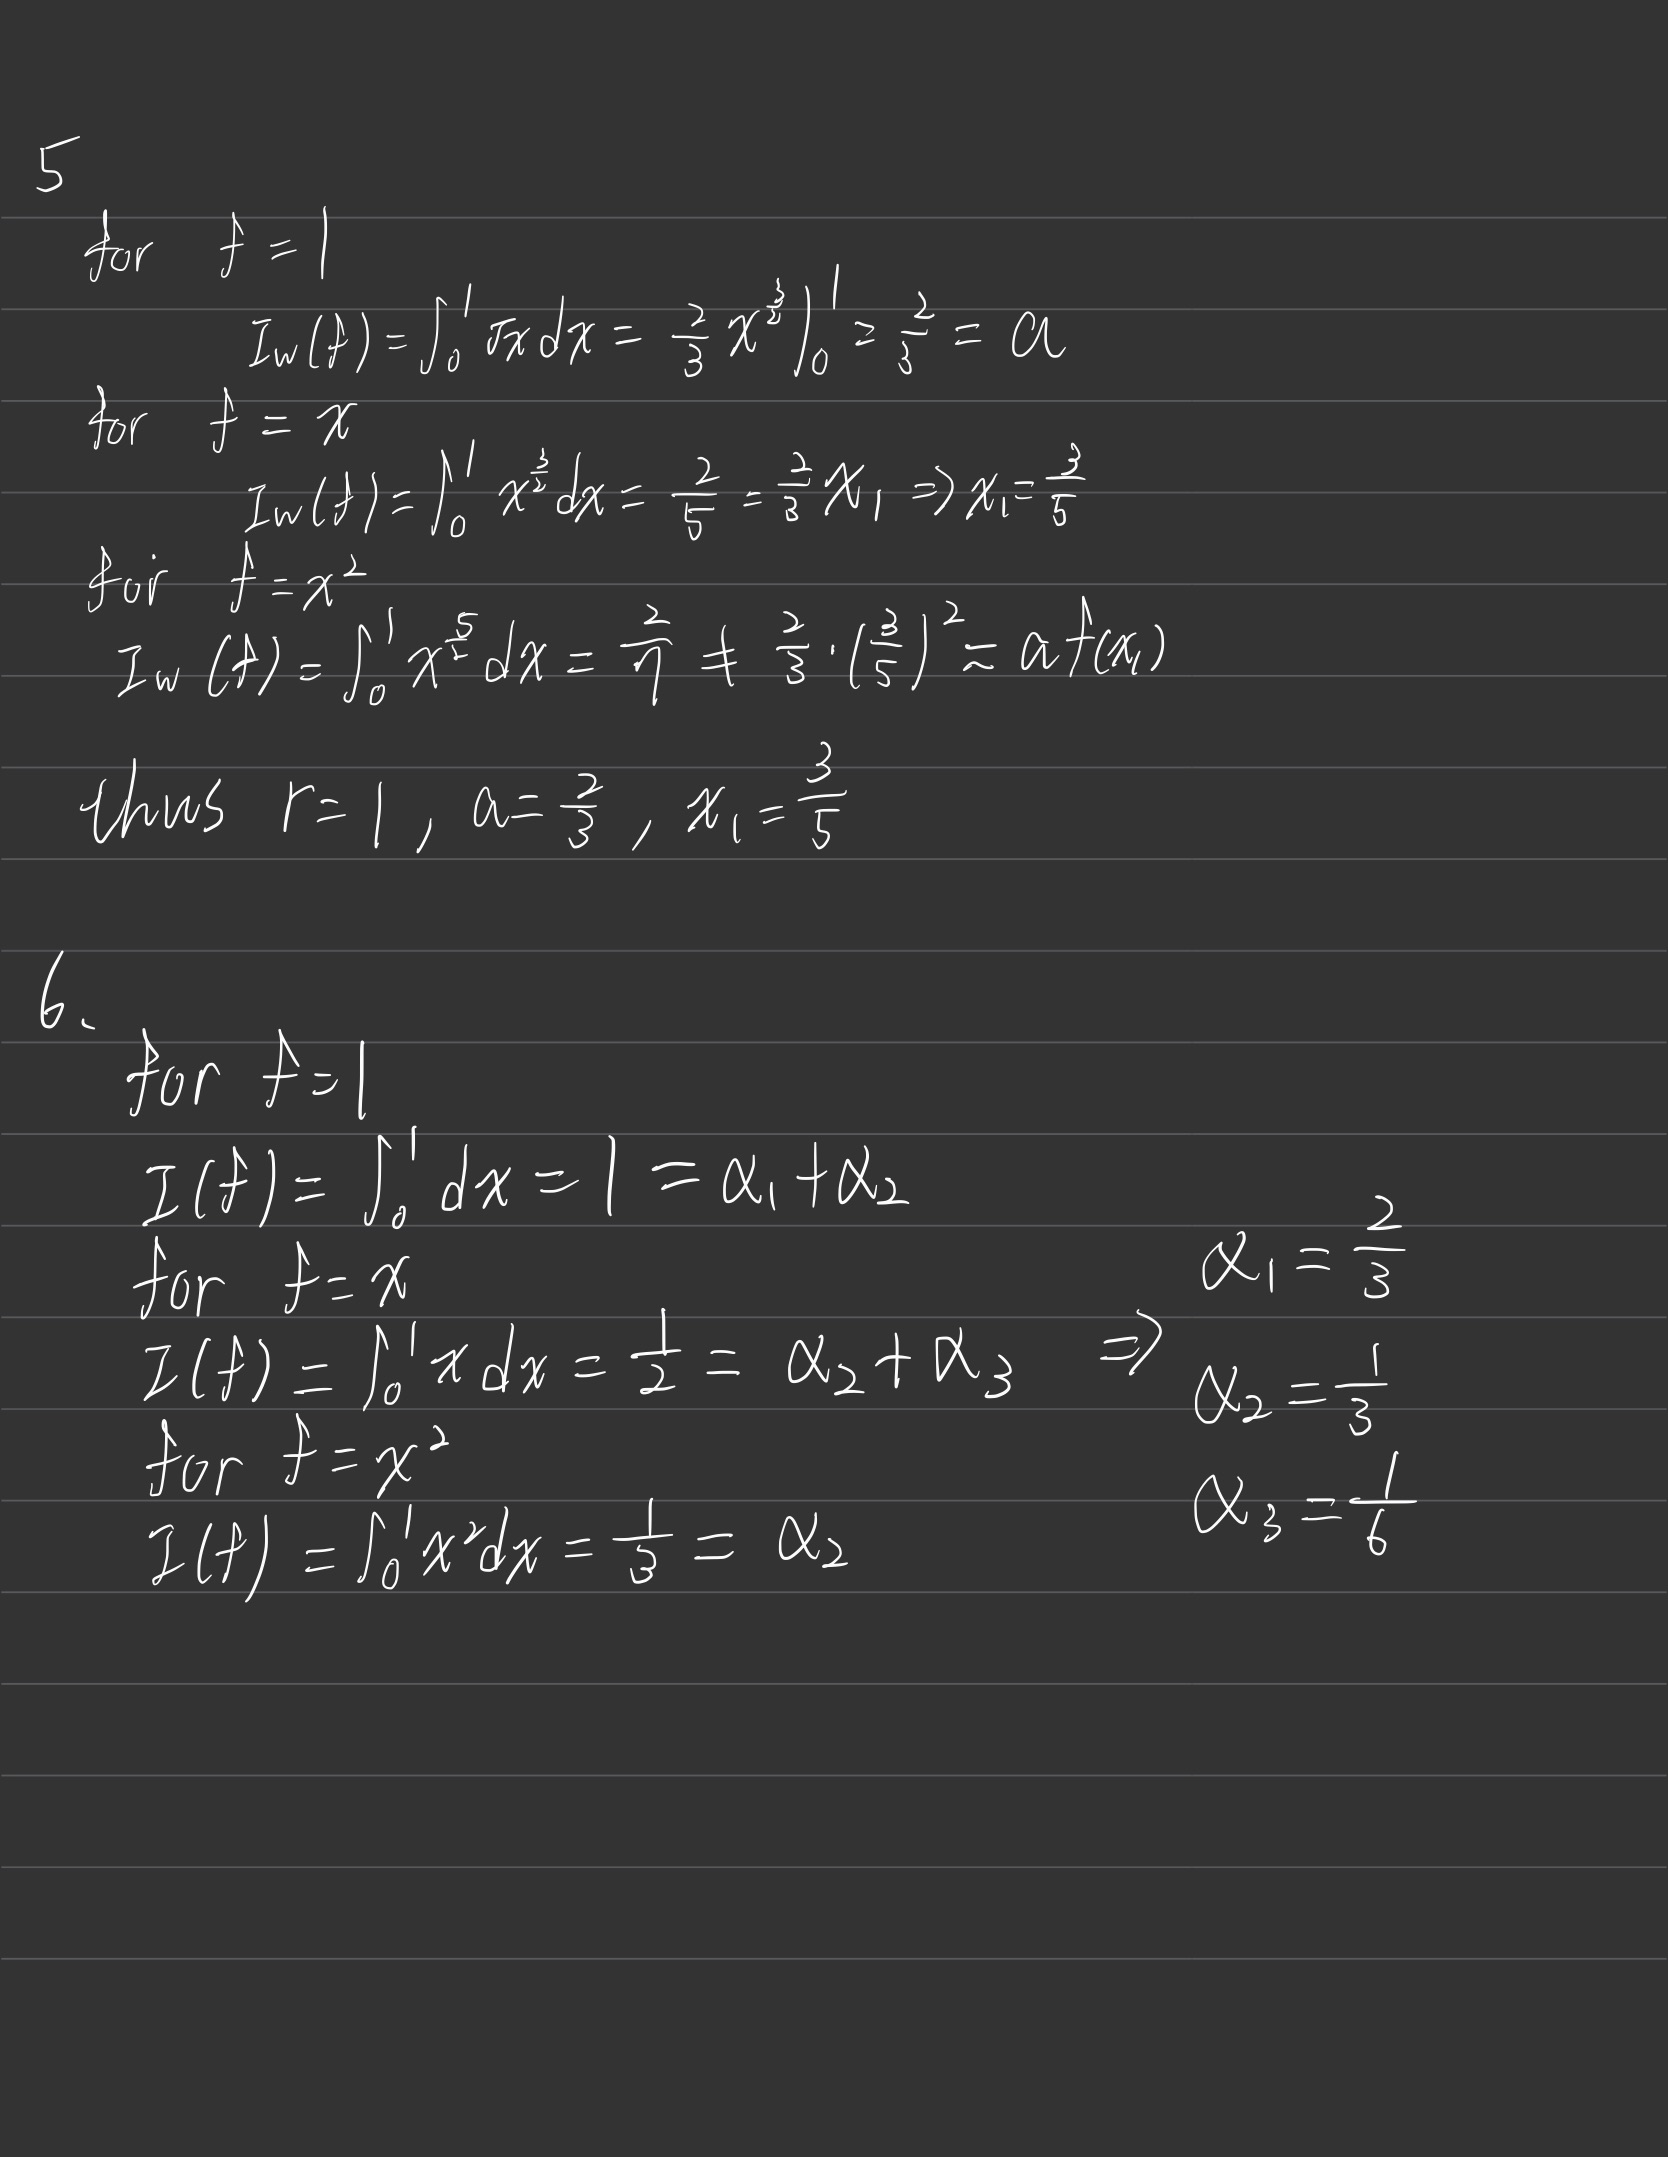 5
for f = 1
I_w(f) = ∫₀¹ √x dx = 2/3 x^(3/2) |₀¹ = 2/3 = a
for f = x
I_w(f) = ∫₀¹ x^(3/2) dx = 2/5 = 2/3 x₁ ⇒ x₁ = 3/5
for f = x²
I_w(f) = ∫₀¹ x^(5/2) dx = 2/7 ≠ 2/3 · (3/5)² = a f(x₁)
thus r = 1 , a = 2/3 , x₁ = 3/5
6.
for f = 1
I(f) = ∫₀¹ dx = 1 = α₁ + α₂
for f = x
I(f) = ∫₀¹ x dx = 1/2 = α₂ + α₃
for f = x²
I(f) = ∫₀¹ x² dx = 1/3 = α₂
⇒
α₁ = 2/3
α₂ = 1/3
α₃ = 1/6